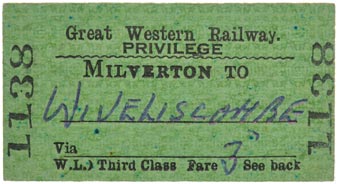 1138
Great Western Railway.
PRIVILEGE
MILVERTON TO
WIVELISCOMBE
Via
W.L.) Third Class Fare 3 See back
1138